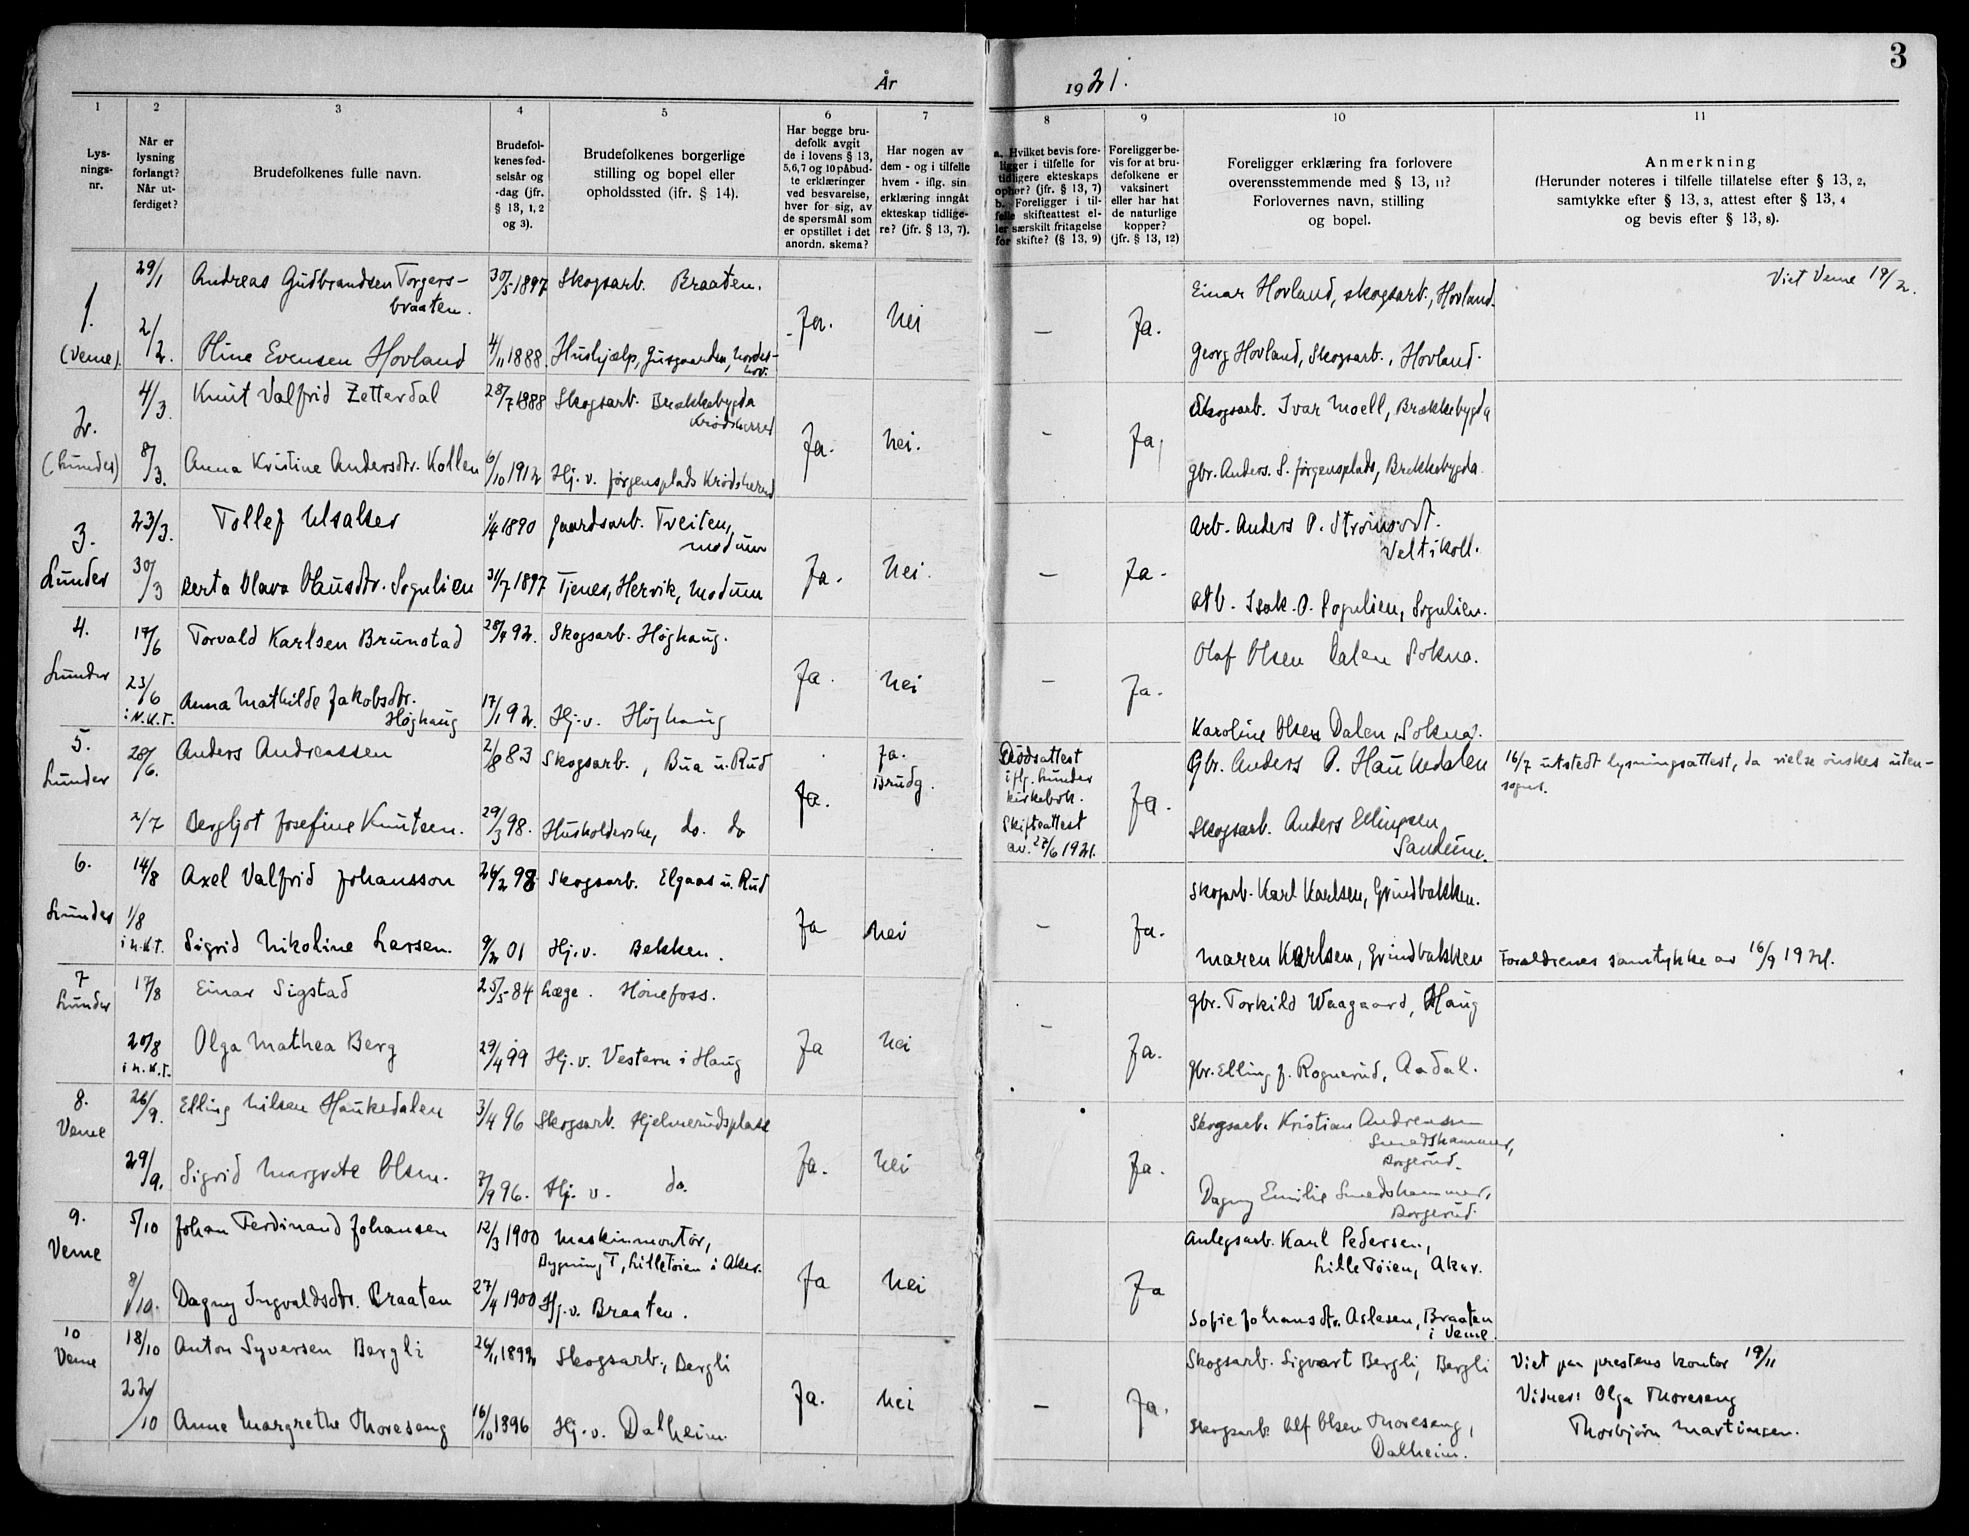 År 1921.
3
1 2 3 4 5 6 7 8 9 10 11
Lys-
nings-
nr.
Når er
lysning
forlangt?
Når ut-
ferdiget?
Brudefolkenes fulle navn.
Brudefol-
kenes fød-
selsår og
-dag (jfr.
§ 13, 1, 2
og 3).
Brudefolkenes borgerlige
stilling og bopel eller
opholdssted (ifr. § 14).
Har begge bru-
defolk avgit
de i lovens § 13,
5,6,7 og 10 påbud-
te erklæringer
ved besvarelse,
hver for sig, av
de spørsmål som
er opstillet i det
anordn. skema?
Har nogen av
dem - og i tilfelle
hvem - iflg. sin
erklæring inngåt
ekteskap tidlige-
re? (jfr. § 13, 7).
a. Hvilket bevis fore-
ligger i tilfelle for
tidligere ekteskaps
ophør? (jfr. § 13, 7)
b. Foreligger i til-
felle skifteattest el-
ler særskilt fritagelse
for skifte? (§ 13, 9)
Foreligger be-
vis for at bru-
defolkene er
vaksinert
eller har hat
de naturlige
kopper?
(jfr. § 13, 12)
Foreligger erklæring fra forlovere
overensstemmende med § 13, 11?
Forlovernes navn, stilling
og bopel.
Anmerkning
(Herunder noteres i tilfelle tillatelse efter § 13, 2,
samtykke efter § 13, 3, attest efter § 13, 4
og bevis efter § 13, 8).
1.
(Veme).
29/1 Andreas Gudbrandsen Torgers-
braaten.
30/5 1897 Skogsarb. Braaten.
2/2. Oline Evensen Hovland 4/11 1888. Hushjælp, Gusgaarden, Nordre-
hov.
Ja. Nei — Ja.
Einar Hovland, skogsarb., Hovland.
Georg Hovland, Skogsarb., Hovland.
Viet Veme 19/2.
2.
(Lunder)
4/3. Knut Valfrid Zetterdal 28/7 1888 Skogsarb. Brækkebygda
Krødsherred
8/3. Anna Kristine Andersdtr. Kollen 6/10 1912 Hj. v. Jørgensplads Krødsherred
Ja. Nei. - Ja
Skogsarb. Ivar Moell, Brækkebygda
Gbr. Anders. S. Jørgensplads, Brekkebygda.
3.
Lunder
23/3. Tollef Ulsaker 1/4 1890 Gaardsarb. Tveiten,
Modum
30/3 Berta Olava Olausdtr. Sogulien 31/7 1897 Tjenes, Hervik, Modum
Ja. Nei. — Ja.
Arb. Anders P.
Veltikoll.
Arb. Isak. O. Sogulien, Sogulien.
4.
Lunder
17/6 Torvald Karlsen Brunstad 28/4 92. Skogsarb. Høghaug.
23/6
i N.K.T.
Anna Mathilde Jakobsdtr.
Høghaug
17/1 92. Hj. v. Høghaug
Ja. Nei — Ja.
Olaf Olsen Dalen Sokna.
Karoline Olsen Dalen, Sokna.
5.
Lunder
28/6. Anders Andreassen 2/8 83 Skogsarb., Bua u. Rud
2/7 Bergljot Josefine Knutsen. 29/3 98. Husholderske, do. do
Ja. Ja.
Brudg.
Dødsattest
iflg. Lunder
kirkebok.
Skifteattest
av. 27/6 1921.
Ja.
Gbr. Anders P. Haukedalen
Skogsarb. Anders Ellingsen
Sandum.
16/7 utstedt lysningsattest, da vielse ønskes uten-
sogns.
6.
Lunder
14/8 Axel Valfrid Johansson 24/2 98 Skogsarb. Elgaas u. Rud
1/8
i N.K.T.
Sigrid Nikoline Larsen. 9/2 01 Hj. v. Bekken.
Ja Nei — Ja.
Skogarb. Karl Karlsen, Grindbakken.
Maren Karlsen, Grindbakken
Forældrenes samtykke av 16/9 1921.
7
Lunder
17/8 Einar Sigstad 25/5 84 Læge. Hønefoss.
20/8
i N.K.T.
Olga Mathea Berg 29/4 99 Hj. v. Vestern i Haug
Ja Nei — Ja.
Gbr. Torkild Waagaard, Haug
Gbr. Elling J. Rognerud, Aadal.
8.
Veme
26/9. Elling Nilsen Haukedalen 3/4 96 Skogsarb. Hjelmerudsplass
29/9. Sigrid Margrete Olsen. 7/9 96. Hj. v. do.
Ja. Nei Ja.
Skogsarb. Kristian Andreassen
Smedshammer,
Borgerud.
Dagny Emilie Smedshammer,
Borgerud.
9.
Veme
5/10 Johan Ferdinand Johansen 12/3 1900 Maskinmontør,
Bygning T, Lilletøien i Aker.
8/10. Dagny Ingvaldsdtr. Braaten 27/4 1900 Hj. v. Braaten.
Ja Nei Ja
Anlegsarb. Karl Pedersen,
Lille Tøien, Aker.
Sofie Johansdtr. Aslesen, Braaten
i Veme.
10
Veme
18/10 Anton Syversen Bergli 26/11 1892 Skogsarb., Bergli
22/10 Anne Margrethe Thoreseng 16/10 1896 Hj. v. Dalheim.
Ja. Nei — Ja.
Skogsarb. Sigvart Bergli, Bergli
Skogsarb. Alf Olsen Thoreseng,
Dalheim.
Viet paa prestens kontor 19/11
Vidner: Olga Thoreseng
Thorbjørn Martinsen.